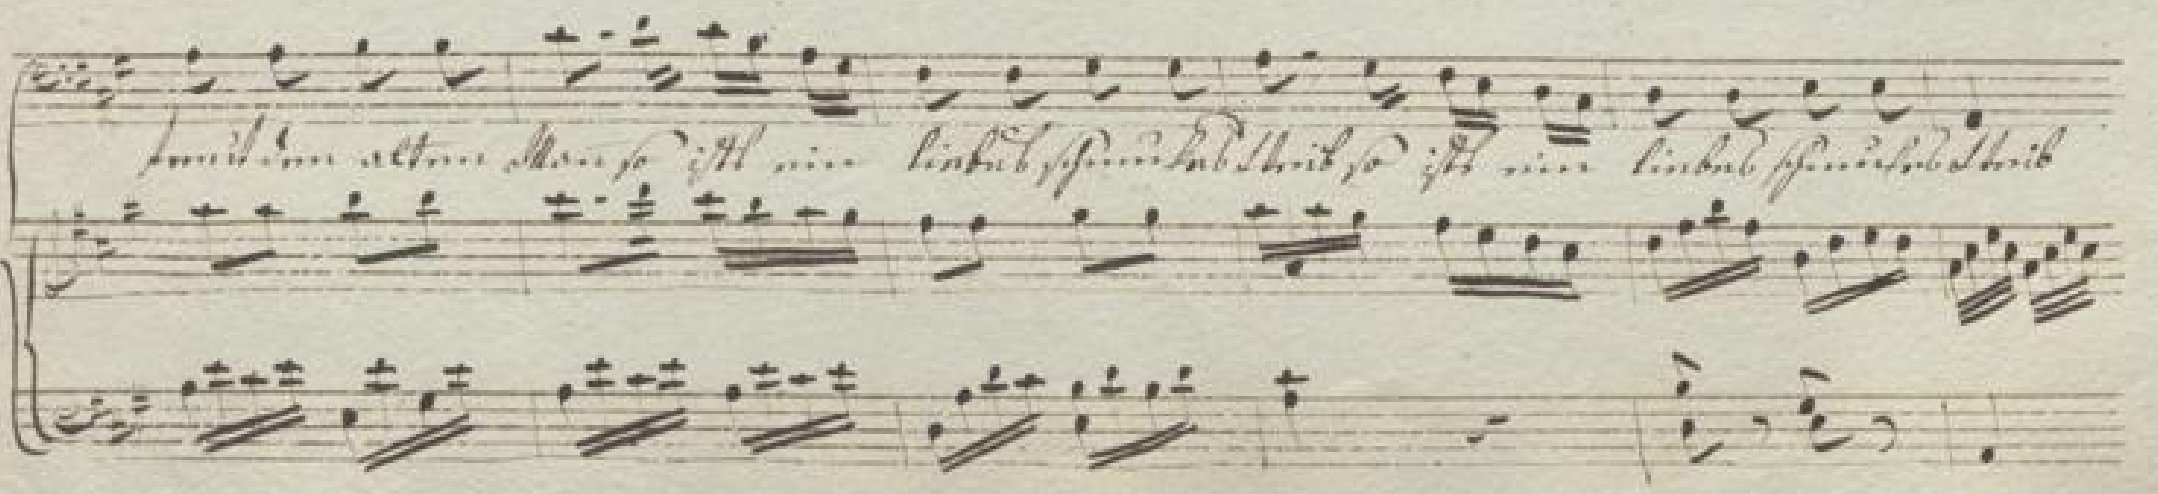 freut den alten Man so ists ein liebes schmukes Weib so ists ein liebes schmukes Weib